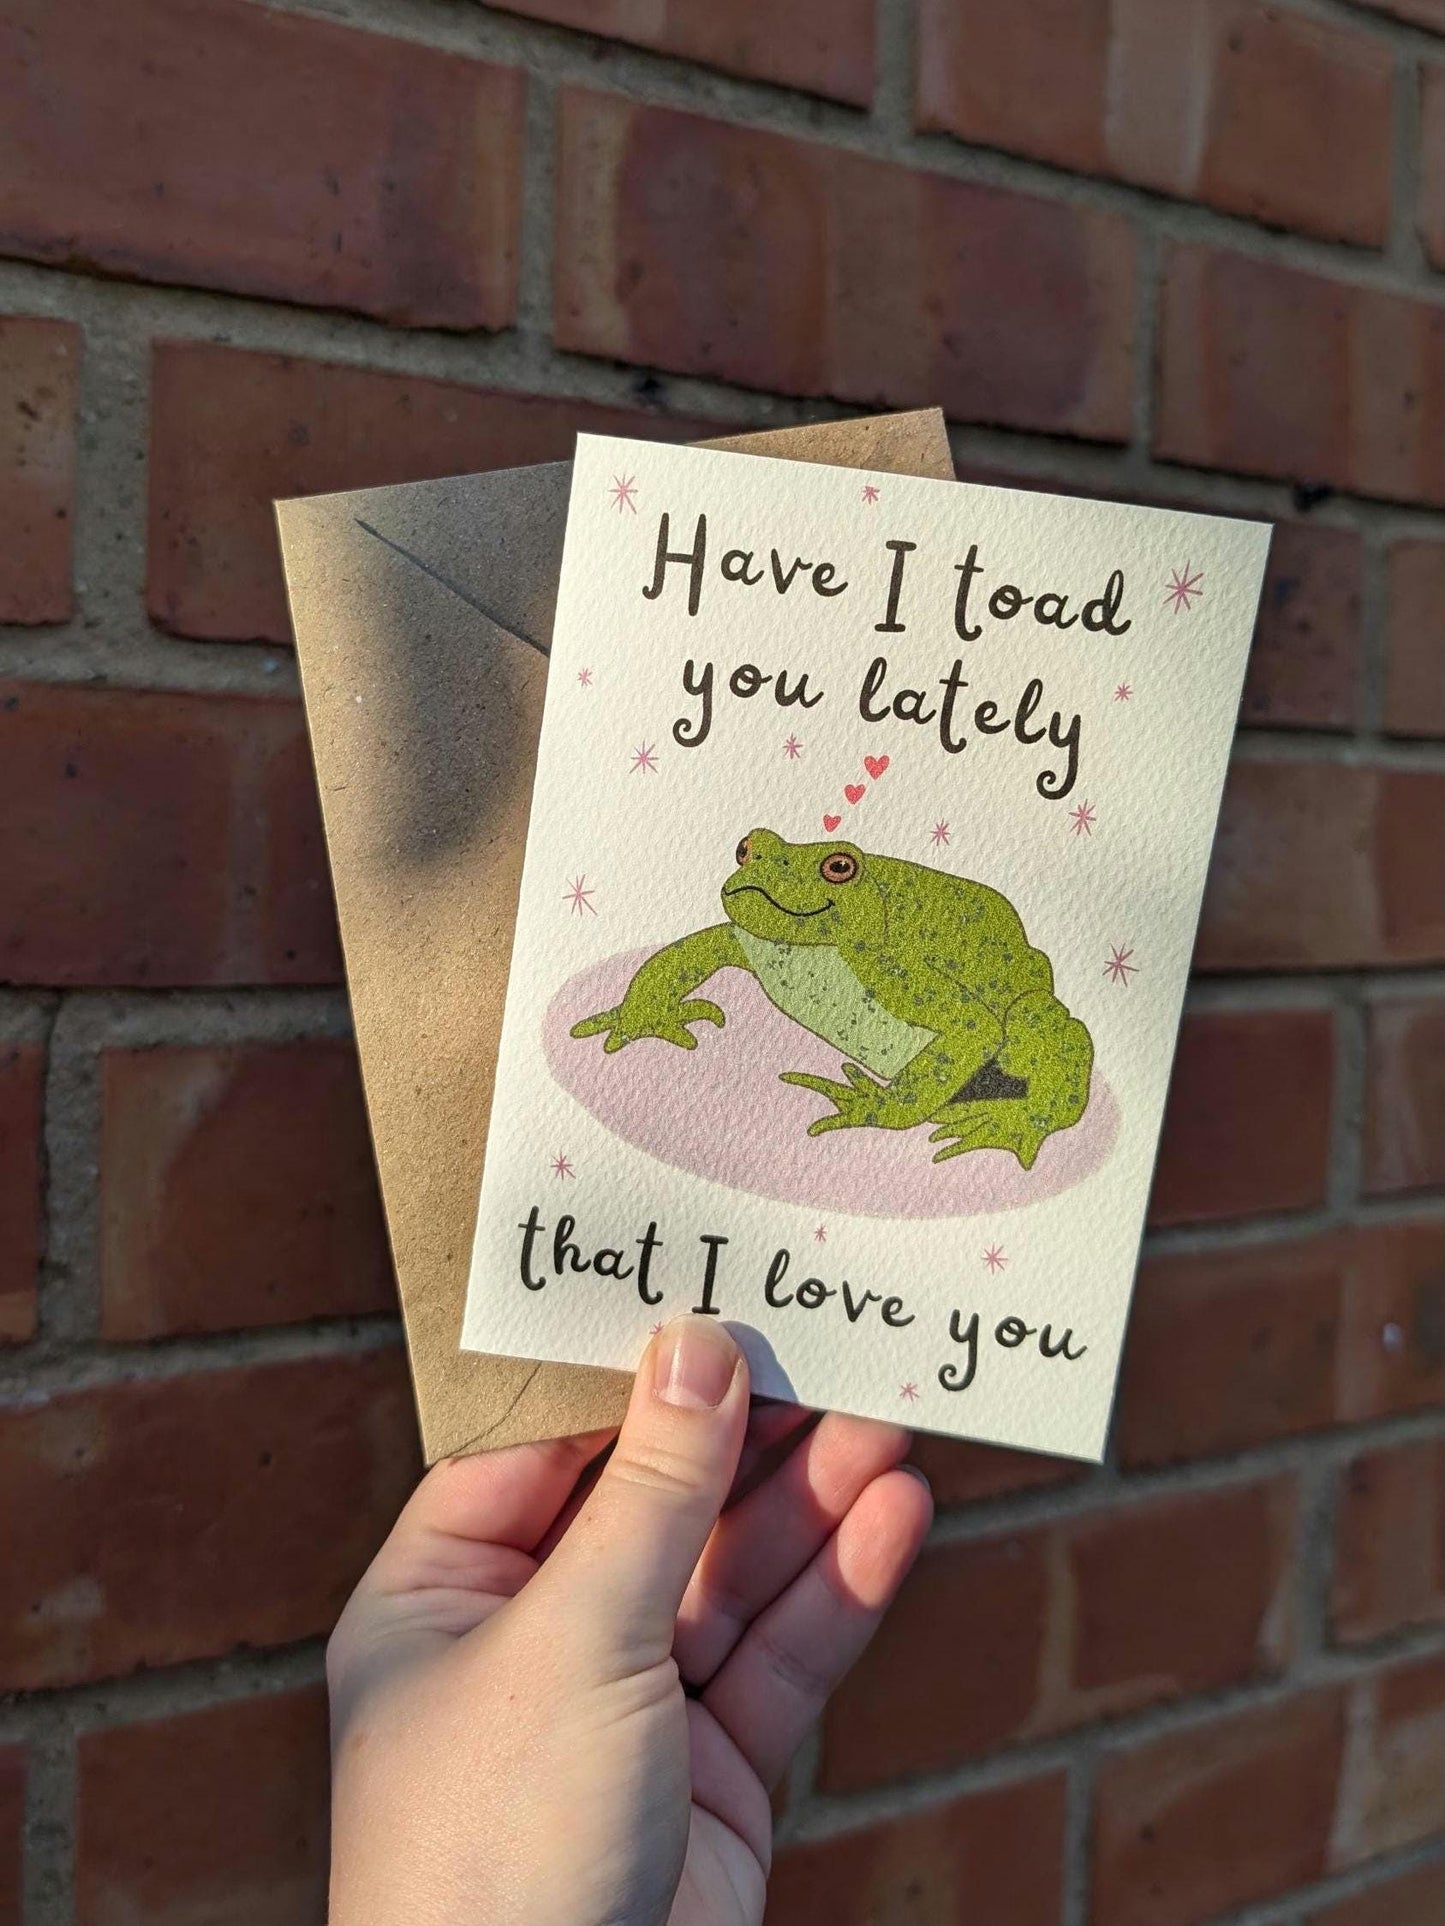 Have I toad
you lately
that I love you